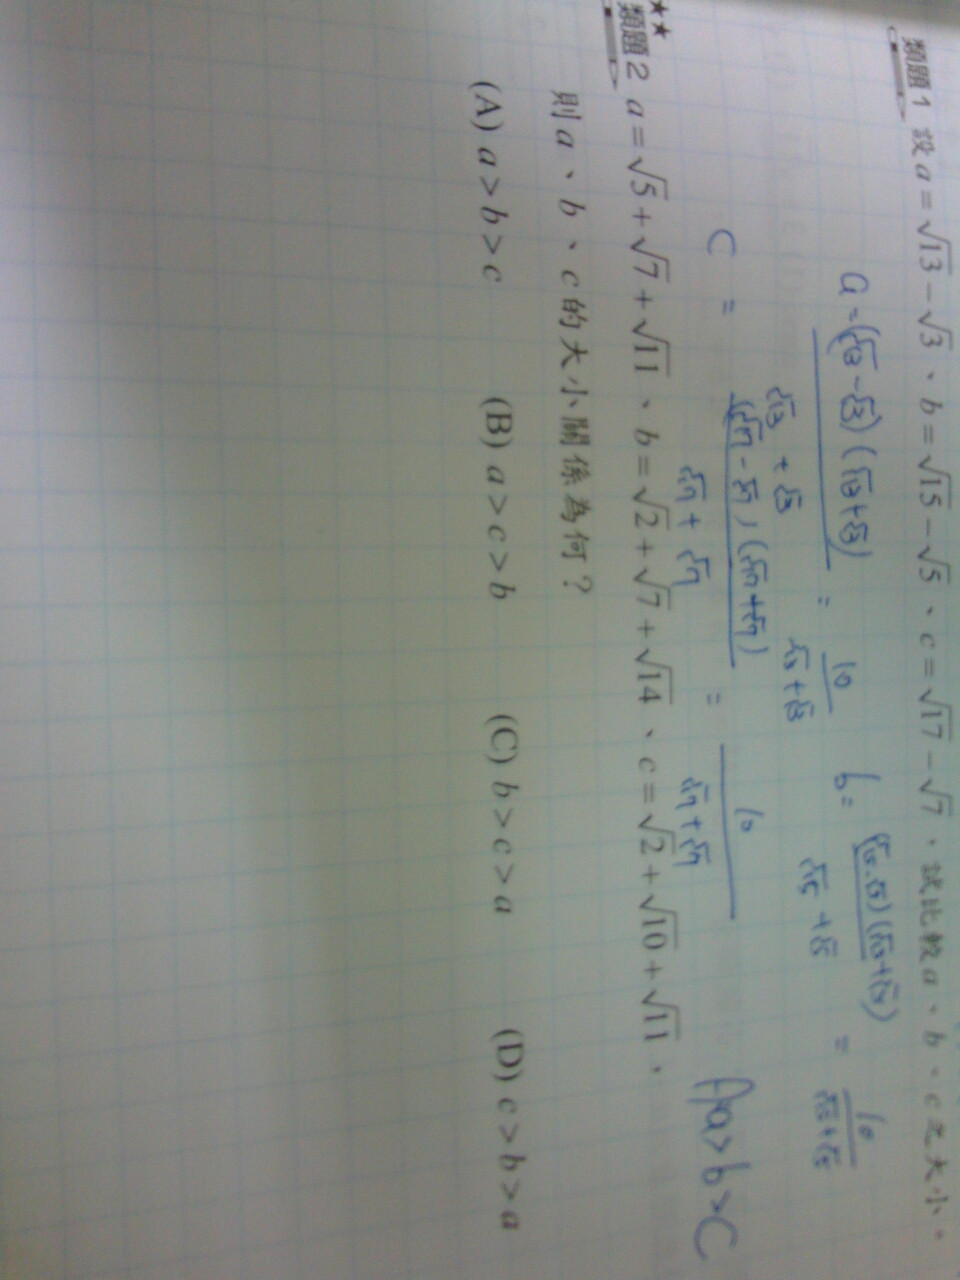 類題1 設a=√13-√3、b=√15-√5、c=√17-√7,試比較a、b、c之大小。
a=(√13-√3)(√13+√3)/(√13+√3) = 10/(√13+√3) b=(√15-√5)(√15+√5)/(√15+√5) = 10/(√15+√5)
C = (√17-√7)(√17+√7)/(√17+√7) = 10/(√17+√7) a>b>C
★★
類題2 a=√5+√7+√11、b=√2+√7+√14、c=√2+√10+√11,
則a、b、c的大小關係為何?
(A) a>b>c (B) a>c>b (C) b>c>a (D) c>b>a